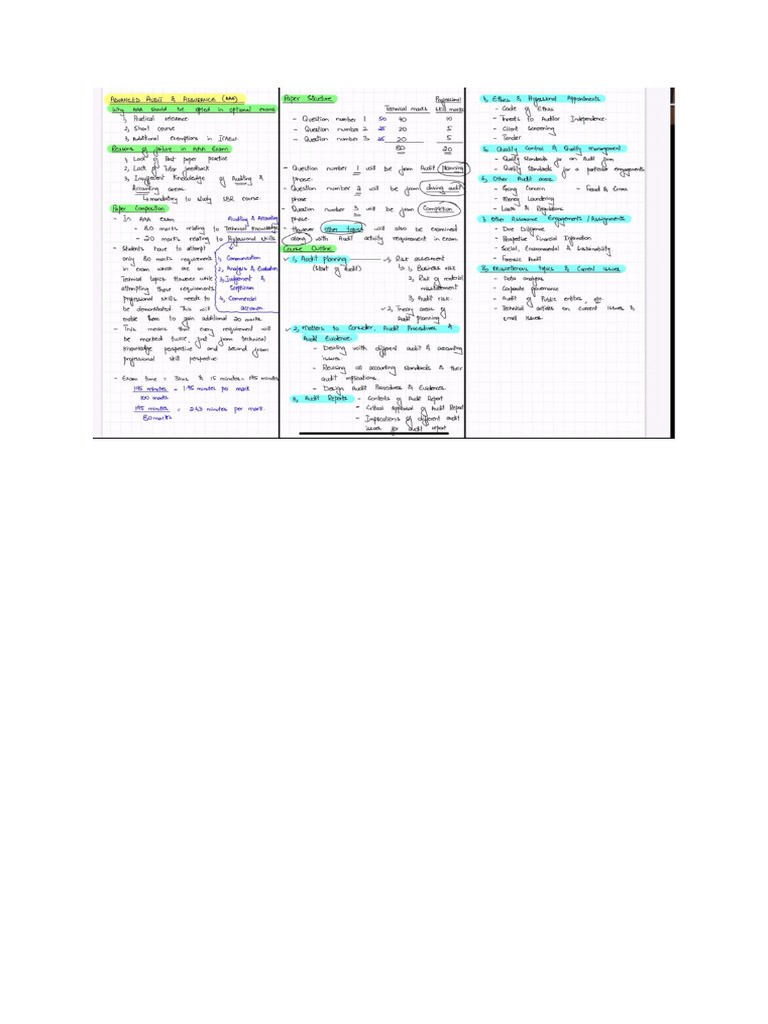 ADVANCED AUDIT & ASSURANCE (AAA)
Why AAA should be opted in optional exams
1, Practical relevance
2, Short course
3, Additional exemptions in ICAEW.
Reasons of failure in AAA Exam
1, Lack of Past paper practice
2, Lack of Tutor feedback
3, Insufficient Knowledge of Auditing &
Accounting areas.
↳ mandatory to study SBR course.
Paper Composition
- In AAA exam
Auditing & Accounting
- 80 marks relating to Technical Knowledge
- 20 marks relating to Professional skills
- Students have to attempt
only 80 marks requirements
in exam which are on
Technical topics. However while
attempting those requirements
professional skills needs to
be demonstrated. This will
1, Communication
2, Analysis & Evaluation
3, Judgement &
Scepticism
4, Commercial
acumen
enable them to gain additional 20 marks.
- This means that every requirement will
be marked twice, first from technical
knowledge perspective and second from
professional skill perspective.
- Exam time = 3hrs & 15 minutes = 195 minutes
195 minutes = 1.95 minutes per mark
100 marks
195 minutes = 2.43 minutes per mark.
80 marks
Paper Structure
Professional
Technical marks skill marks
- Question number 1 50 40 10
- Question number 2 25 20 5
- Question number 3 25 20 5
80 20
- Question number 1 will be from Audit planning
phase.
- Question number 2 will be from during audit
phase
- Question number 3 will be from Completion
phase.
- However other topics will also be examined
along with Audit activity requirement in exam.
Course Outline
✓ 1, Audit planning → Risk assessment
(Start of Audit) ↳ 1, Business risk
2, Risk of material
misstatement
3, Audit risk.
✓ 2, Theory areas of
Audit planning
✓ 2, Matters to Consider, Audit Procedures &
Audit Evidence.
- Dealing with different audit & accounting
issues.
- Revising all accounting standards & their
audit implications.
- Design Audit Procedures & Evidences.
3, Audit Reports - Contents of Audit Report
- Critical appraisal of Audit Report
- Implications of different audit
issues for audit report
4, Ethics & Professional Appointments
- Code of Ethics
- Threats to Auditor Independence.
- Client screening
- Tender
5, Quality Control & Quality management
- Quality standards for an Audit firm
- Quality standards for a particular engagements.
6, Other Audit areas
- Going Concern - Fraud & Errors
- Money Laundering
- Laws & Regulations
7, Other Assurance Engagements / Assignments
- Due Diligence
- Prospective Financial Information
- Social, Environmental & Sustainability.
- Forensic Audit
8, Miscellaneous topics & Current issues
- Data analytics
- Corporate governance
- Audit of Public entities, etc
- Technical articles on current issues &